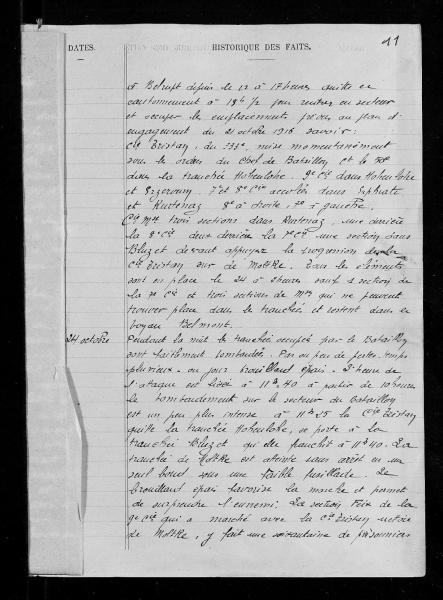 11
DATES. HISTORIQUE DES FAITS.
à Belrupt depuis le 12 à 17 heures quitte ce
cantonnement à 18h 1/2 pour rentrer en secteur
et occuper les emplacements prévus au plan d'
engagement du 21 octobre 1916 savoir :
Cie Tristan, du 333e, mise momentanément
sous les ordres du Chef de Bataillon et le
dans la tranchée Hohenlohe. 9e Cie dans Hohenlohe
et Erzeroum. 7e et 8e Cies accolées dans Euphrate
et Kurtenaz 8e à droite, 7e à gauche.
Cie Mses trois sections dans Kurtenaz, une derrière
la 8e Cie deux derrière la 7e Cie une section dans
Bluzet devant appuyer la progression de la
Cie Tristan sur de Moltke. Tous les éléments
sont en place le 24 à 2 heures sauf 1 section de
la 7e Cie et trois sections de Mses qui ne peuvent
trouver place dans la tranchée et restent dans le
boyau Belmont.
24 octobre Pendant la nuit la tranchée occupée par le Bataillon
sont faiblement bombardées. Pas ou peu de pertes, temps
pluvieux - au jour brouillard épais. L'heure de
l'attaque est fixée à 11h40 à partir de 10 heures
le bombardement sur le secteur du bataillon
est un peu plus intense à 11h25 la Cie Tristan
quitte la tranchée Hohenlohe, se porte à la
tranchée Bluzet qu'elle franchit à 11h40. La
tranchée de Moltke est atteinte sans arrêt en un
seul bond sous une faible fusillade. Le
brouillard épais favorise la marche et permet
de surprendre l'ennemi. La section Feix de la
9e Cie qui a marché avec la Cie Tristan
de Moltke, y fait une soixantaine de prisonniers